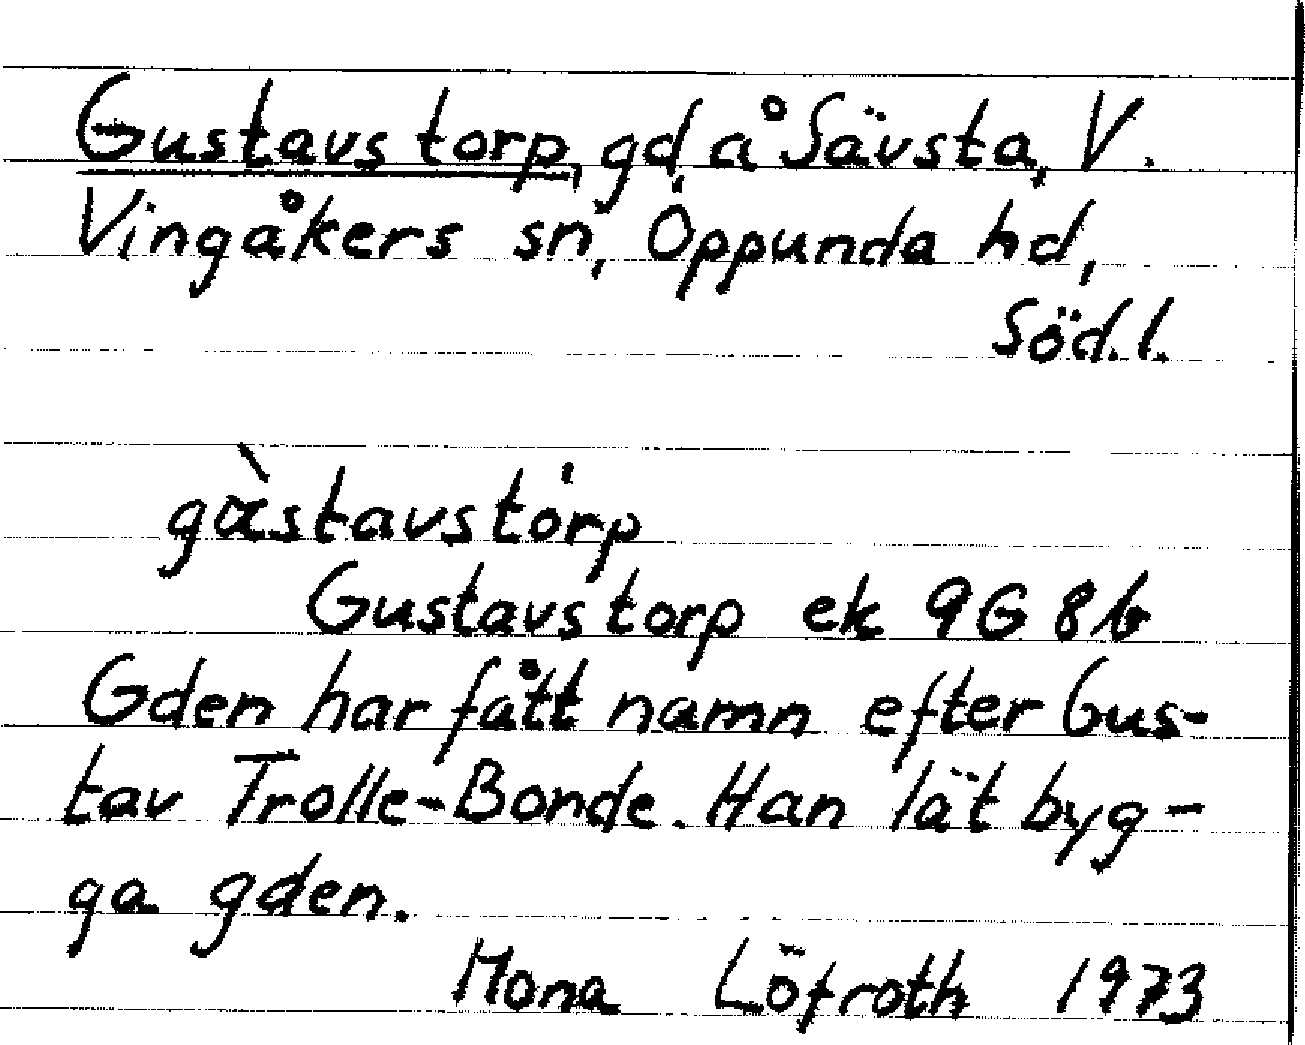 Gustavstorp, gd å Sävsta, V.
Vingåkers sn, Oppunda hd,
Söd.l.
gàstavstórp
Gustavstorp ek 9G 8b
Gden har fått namn efter Gus-
tav Trolle-Bonde. Han lät byg-
ga gden.
Mona Löfroth 1973